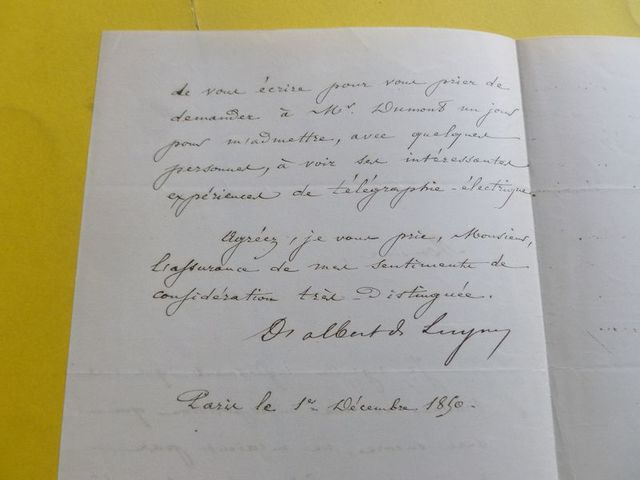 de vous écrire pour vous prier de
demander à Mr. Dumont un jour
pour m'admettre, avec quelques
personnes, à voir ses intéressantes
expériences de télégraphie-électrique
Agréez, je vous prie, Monsieur,
l'assurance de mes sentiments de
considération très-distinguée.
D. d'albert de Luynes
Paris le 1er Décembre 1850.